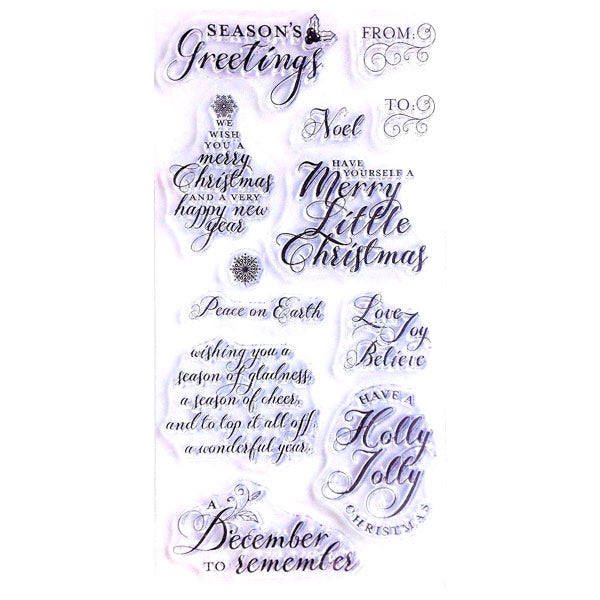 SEASON'S
Greetings
FROM:
TO:
Noel
WE
WISH
YOU A
merry
Christmas
AND A VERY
happy new
year
HAVE
YOURSELF A
Merry
Little
Christmas
Peace on Earth
Love
Joy
Believe
wishing you a
season of gladness,
a season of cheer,
and to top it all off,
a wonderful year.
HAVE A
Holly
Jolly
CHRISTMAS
A
December
TO remember